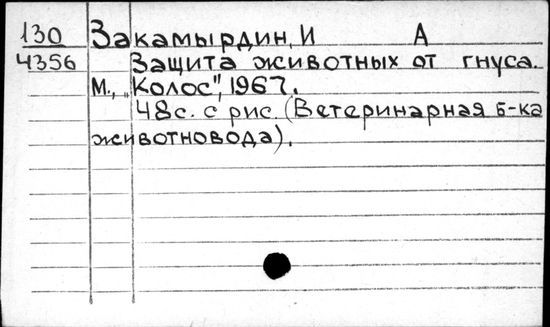 130 Закамырдин, И А
4356 Защита животных от гнуса.
М., "Колос", 1967.
48с. с рис. (Ветеринарная б-ка
животновода).